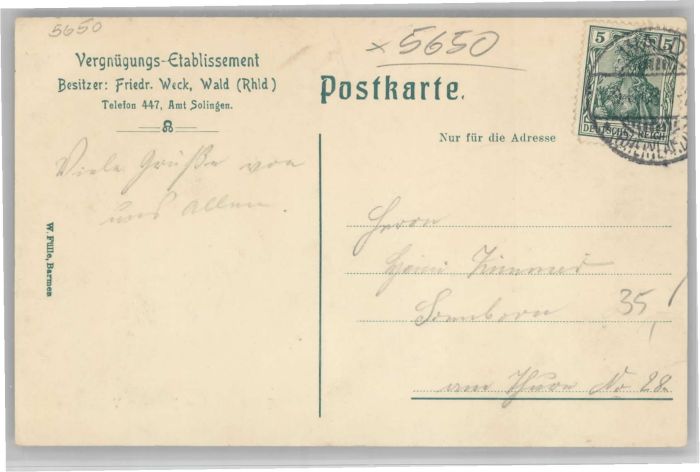 5650
x 5650
Vergnügungs-Etablissement
Besitzer: Friedr. Weck, Wald (Rhld)
Telefon 447, Amt Solingen.
Postkarte.
Nur für die Adresse
5 5
DEUTSCHES REICH
Viele Grüße von
uns allen.
W. Fülle, Barmen
Herrn
Heini Zimmer
Sonnborn
35
am Thurn No 28.